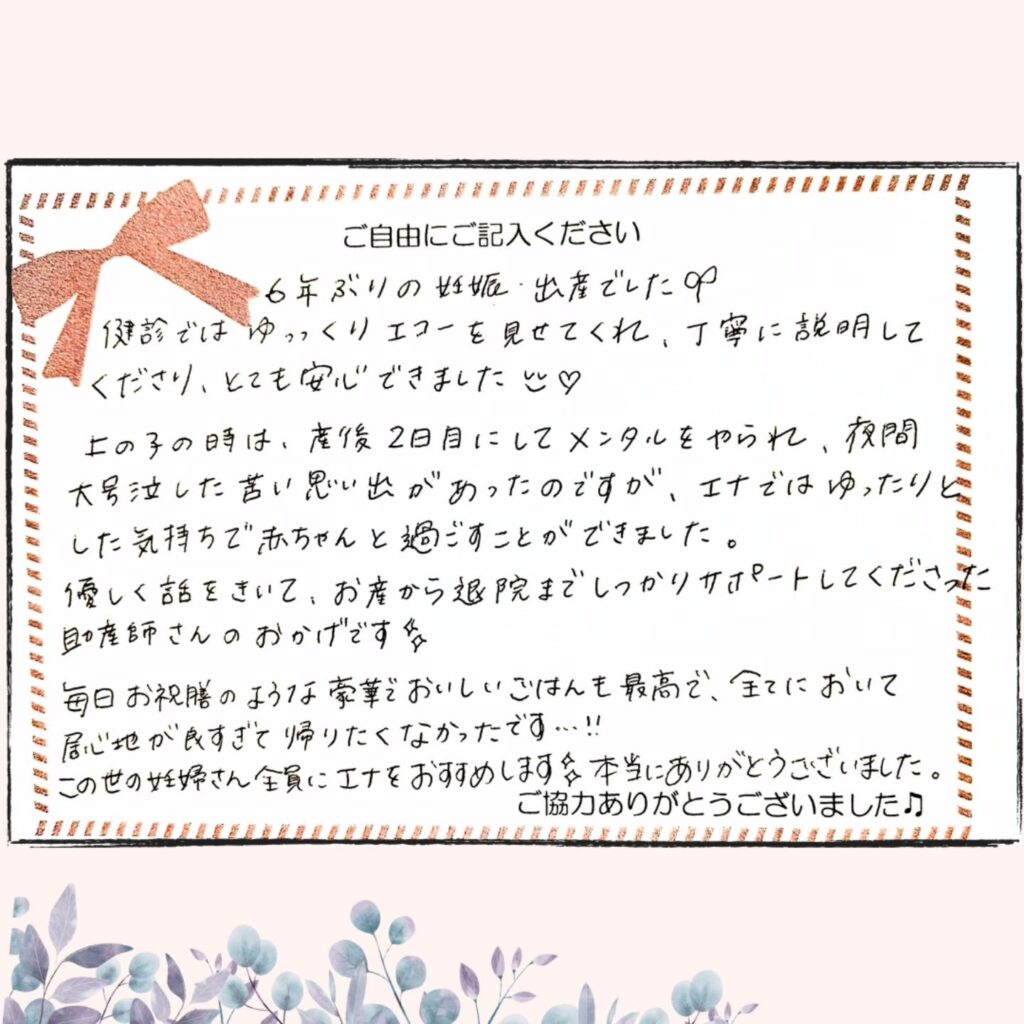 ご自由にご記入ください
6年ぶりの妊娠・出産でした
健診ではゆっくりエコーを見せてくれ、丁寧に説明して
くださり、とても安心できました♡
上の子の時は、産後2日目にしてメンタルをやられ、夜間
大号泣した苦い思い出があったのですが、エナではゆったりと
した気持ちで赤ちゃんと過ごすことができました。
優しく話をきいて、お産から退院までしっかりサポートしてくださった
助産師さんのおかげです
毎日お祝膳のような豪華でおいしいごはんも最高で、全てにおいて
居心地が良すぎて帰りたくなかったです…!!
この世の妊婦さん全員にエナをおすすめします 本当にありがとうございました。
ご協力ありがとうございました♫